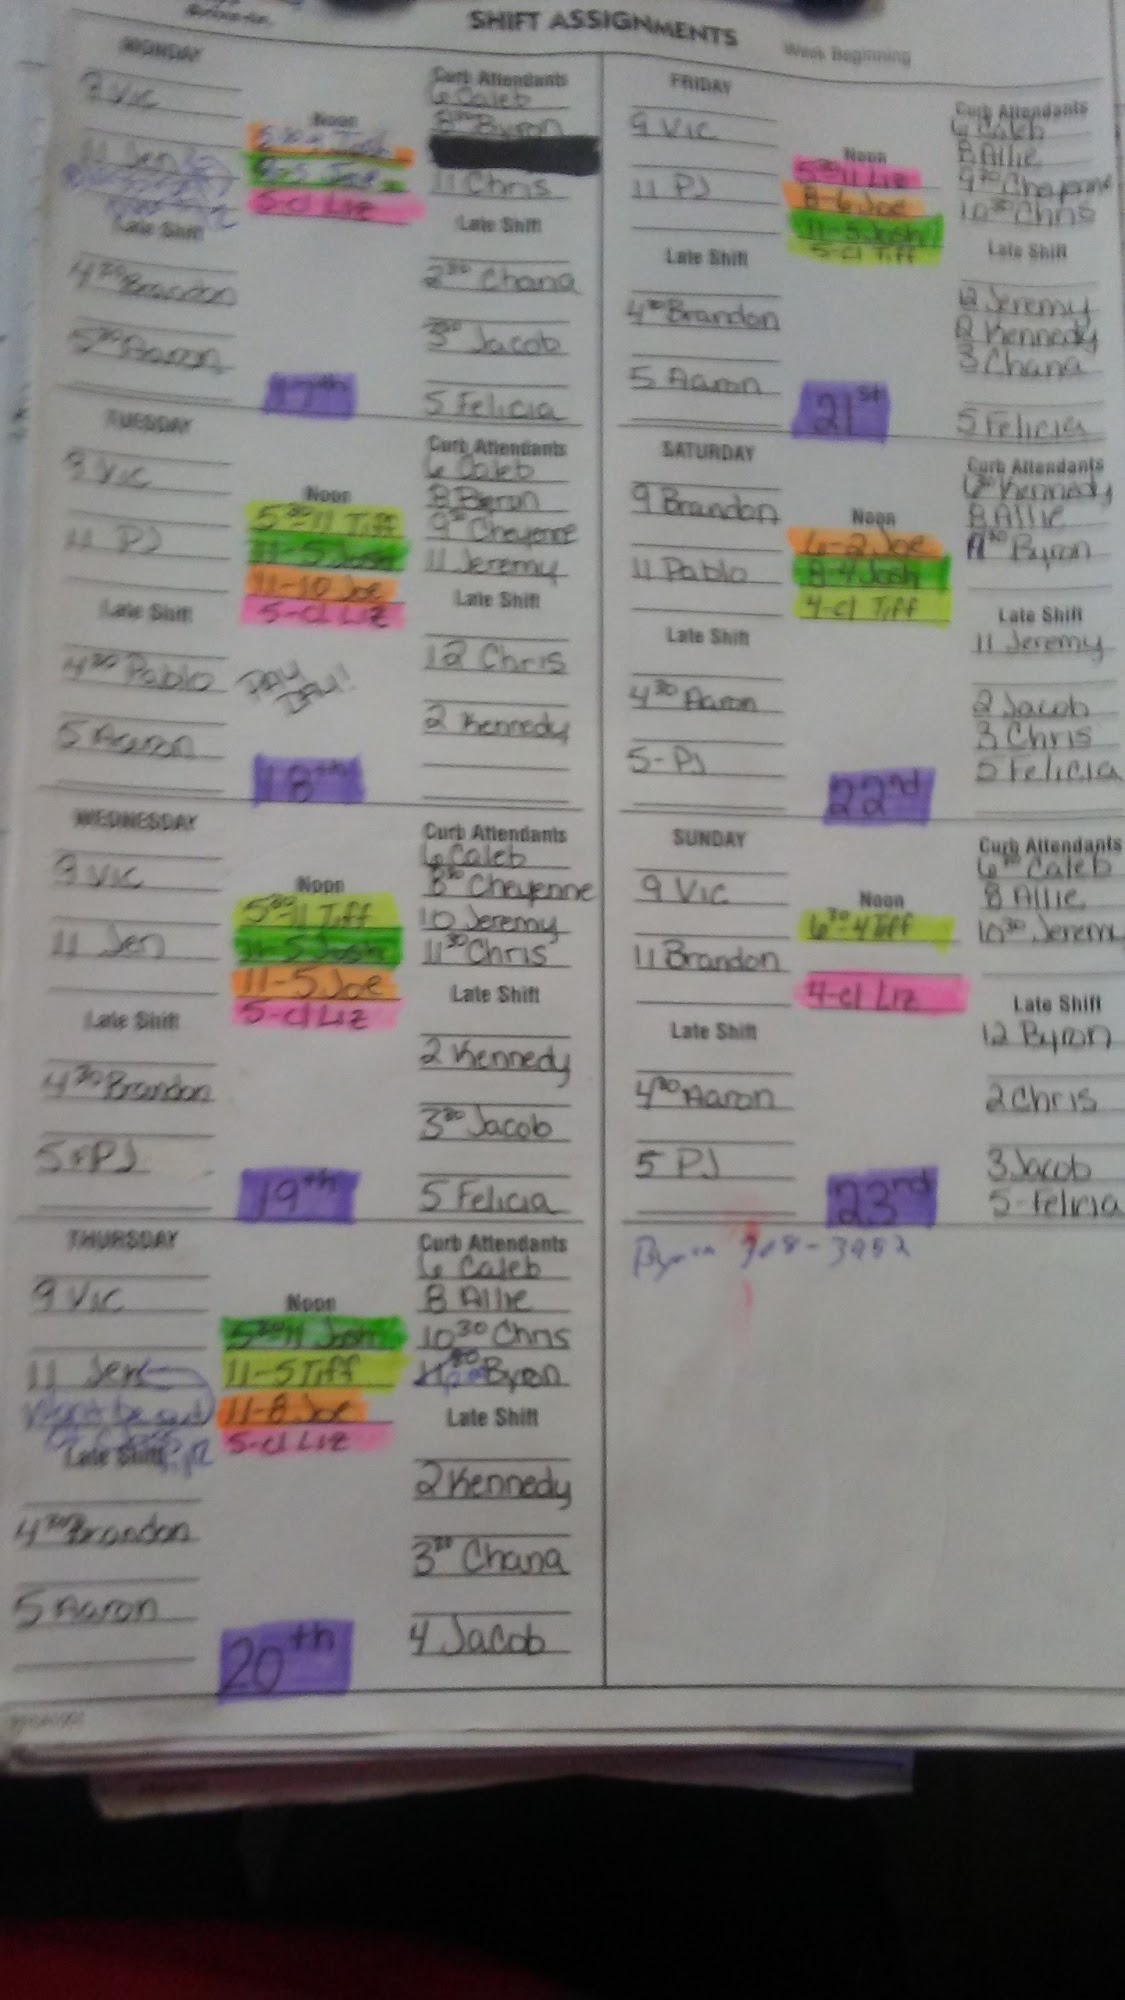 SHIFT ASSIGNMENTS
Week Beginning
MONDAY
9 Vic
11 Jen
Late Shift
4³⁰ Brandon
5³⁰ Aaron
Noon
Josh
8-5 Joe
5-cl Liz
17th
Curb Attendants
6 Caleb
8³⁰ Byron
11 Chris
Late Shift
2³⁰ Chana
3³⁰ Jacob
5 Felicia
TUESDAY
9 Vic
11 PJ
Late Shift
4³⁰ Pablo
5 Aaron
Noon
5³⁰-11 Tiff
11-5 Josh
11-10 Joe
5-cl Liz
PAY
DAY!
18th
Curb Attendants
6 Caleb
8 Byron
9³⁰ Cheyenne
11 Jeremy
Late Shift
12 Chris
2 Kennedy
WEDNESDAY
9 Vic
11 Jen
Late Shift
4³⁰ Brandon
5 PJ
Noon
5³⁰-11 Tiff
11-5 Josh
11-5 Joe
5-cl Liz
19th
Curb Attendants
6 Caleb
8³⁰ Cheyenne
10 Jeremy
11³⁰ Chris
Late Shift
2 Kennedy
3³⁰ Jacob
5 Felicia
THURSDAY
9 Vic
11 Jen
Late Shift
4³⁰ Brandon
5 Aaron
Noon
5³⁰-11 Josh
11-5 Tiff
11-8 Joe
5-cl Liz
20th
Curb Attendants
6 Caleb
8 Allie
10³⁰ Chris
Byron
Late Shift
2 Kennedy
3³⁰ Chana
4 Jacob
FRIDAY
9 Vic
11 PJ
Late Shift
4³⁰ Brandon
5 Aaron
Noon
5³⁰-11 Liz
8-6 Joe
11-5 Josh
5-cl Tiff
21st
Curb Attendants
6 Caleb
8 Allie
9³⁰ Cheyenne
10³⁰ Chris
Late Shift
12 Jeremy
2 Kennedy
3 Chana
5 Felicia
SATURDAY
9 Brandon
11 Pablo
Late Shift
4³⁰ Aaron
5-PJ
Noon
6-2 Joe
8-4 Josh
4-cl Tiff
22nd
Curb Attendants
6³⁰ Kennedy
8 Allie
Byron
Late Shift
11 Jeremy
2 Jacob
3 Chris
5 Felicia
SUNDAY
9 Vic
11 Brandon
Late Shift
4³⁰ Aaron
5 PJ
Noon
6³⁰-4 Tiff
4-cl Liz
23nd
Curb Attendants
6³⁰ Caleb
8 Allie
10³⁰ Jeremy
Late Shift
12 Byron
2 Chris
3 Jacob
5-Felicia
Byron 908-3952